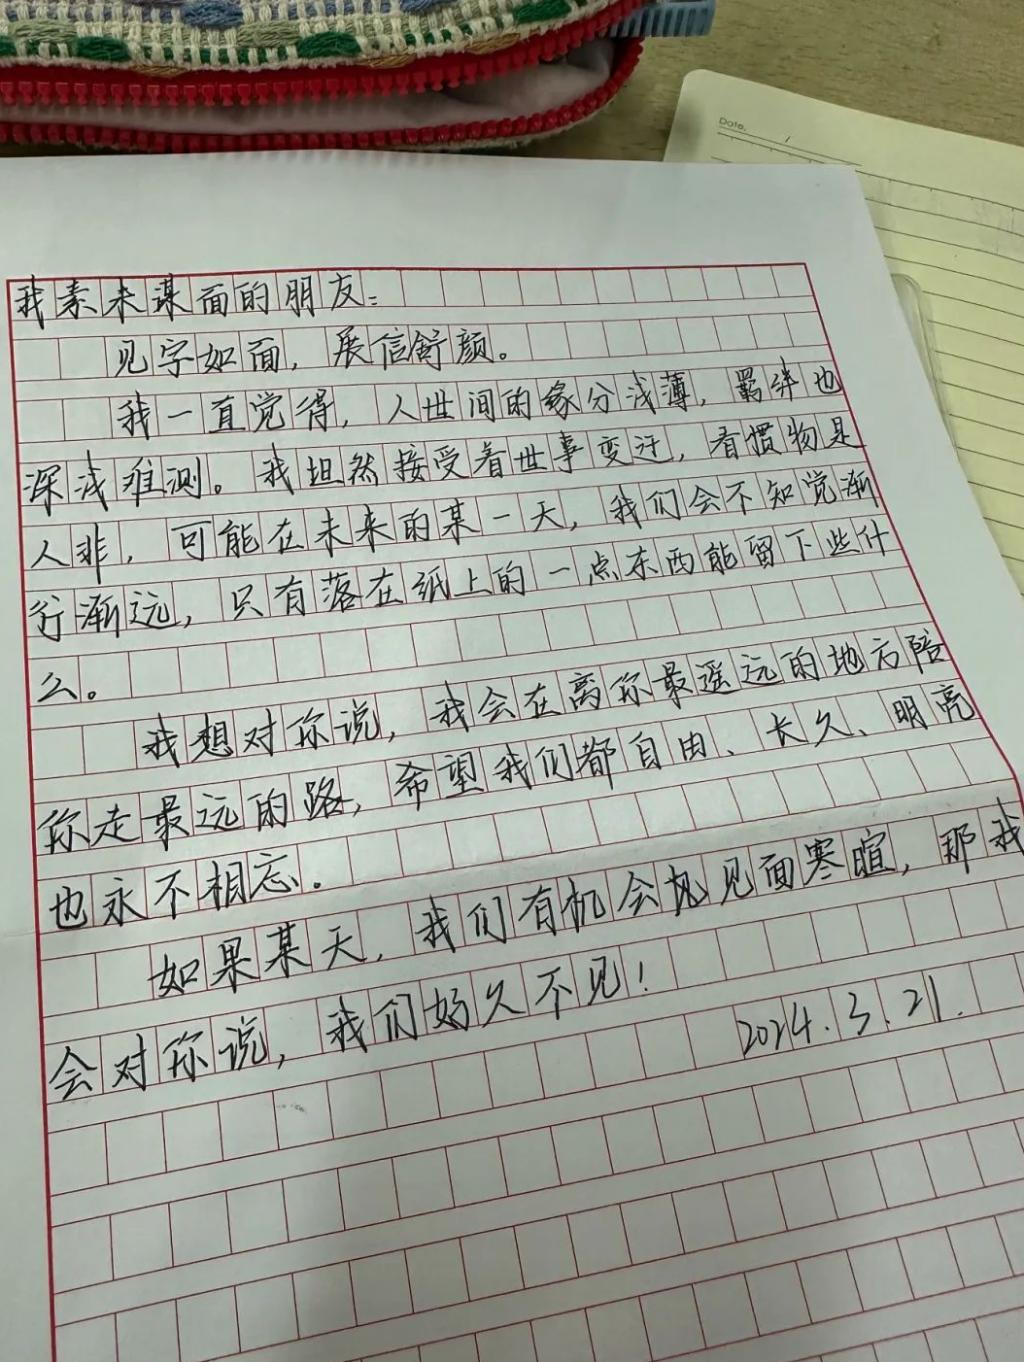 Date.
我素未谋面的朋友：
见字如面，展信舒颜。
我一直觉得，人世间的缘分浅薄，羁绊也
深浅难测。我坦然接受着世事变迁，看惯物是
人非，可能在未来的某一天，我们会不知觉渐
行渐远，只有落在纸上的一点东西能留下些什
么。
我想对你说，我会在离你最遥远的地方陪
你走最远的路，希望我们都自由、长久、明亮
也永不相忘。
如果某天，我们有机会见面寒暄，那我
会对你说，我们好久不见！
2024.3.21.